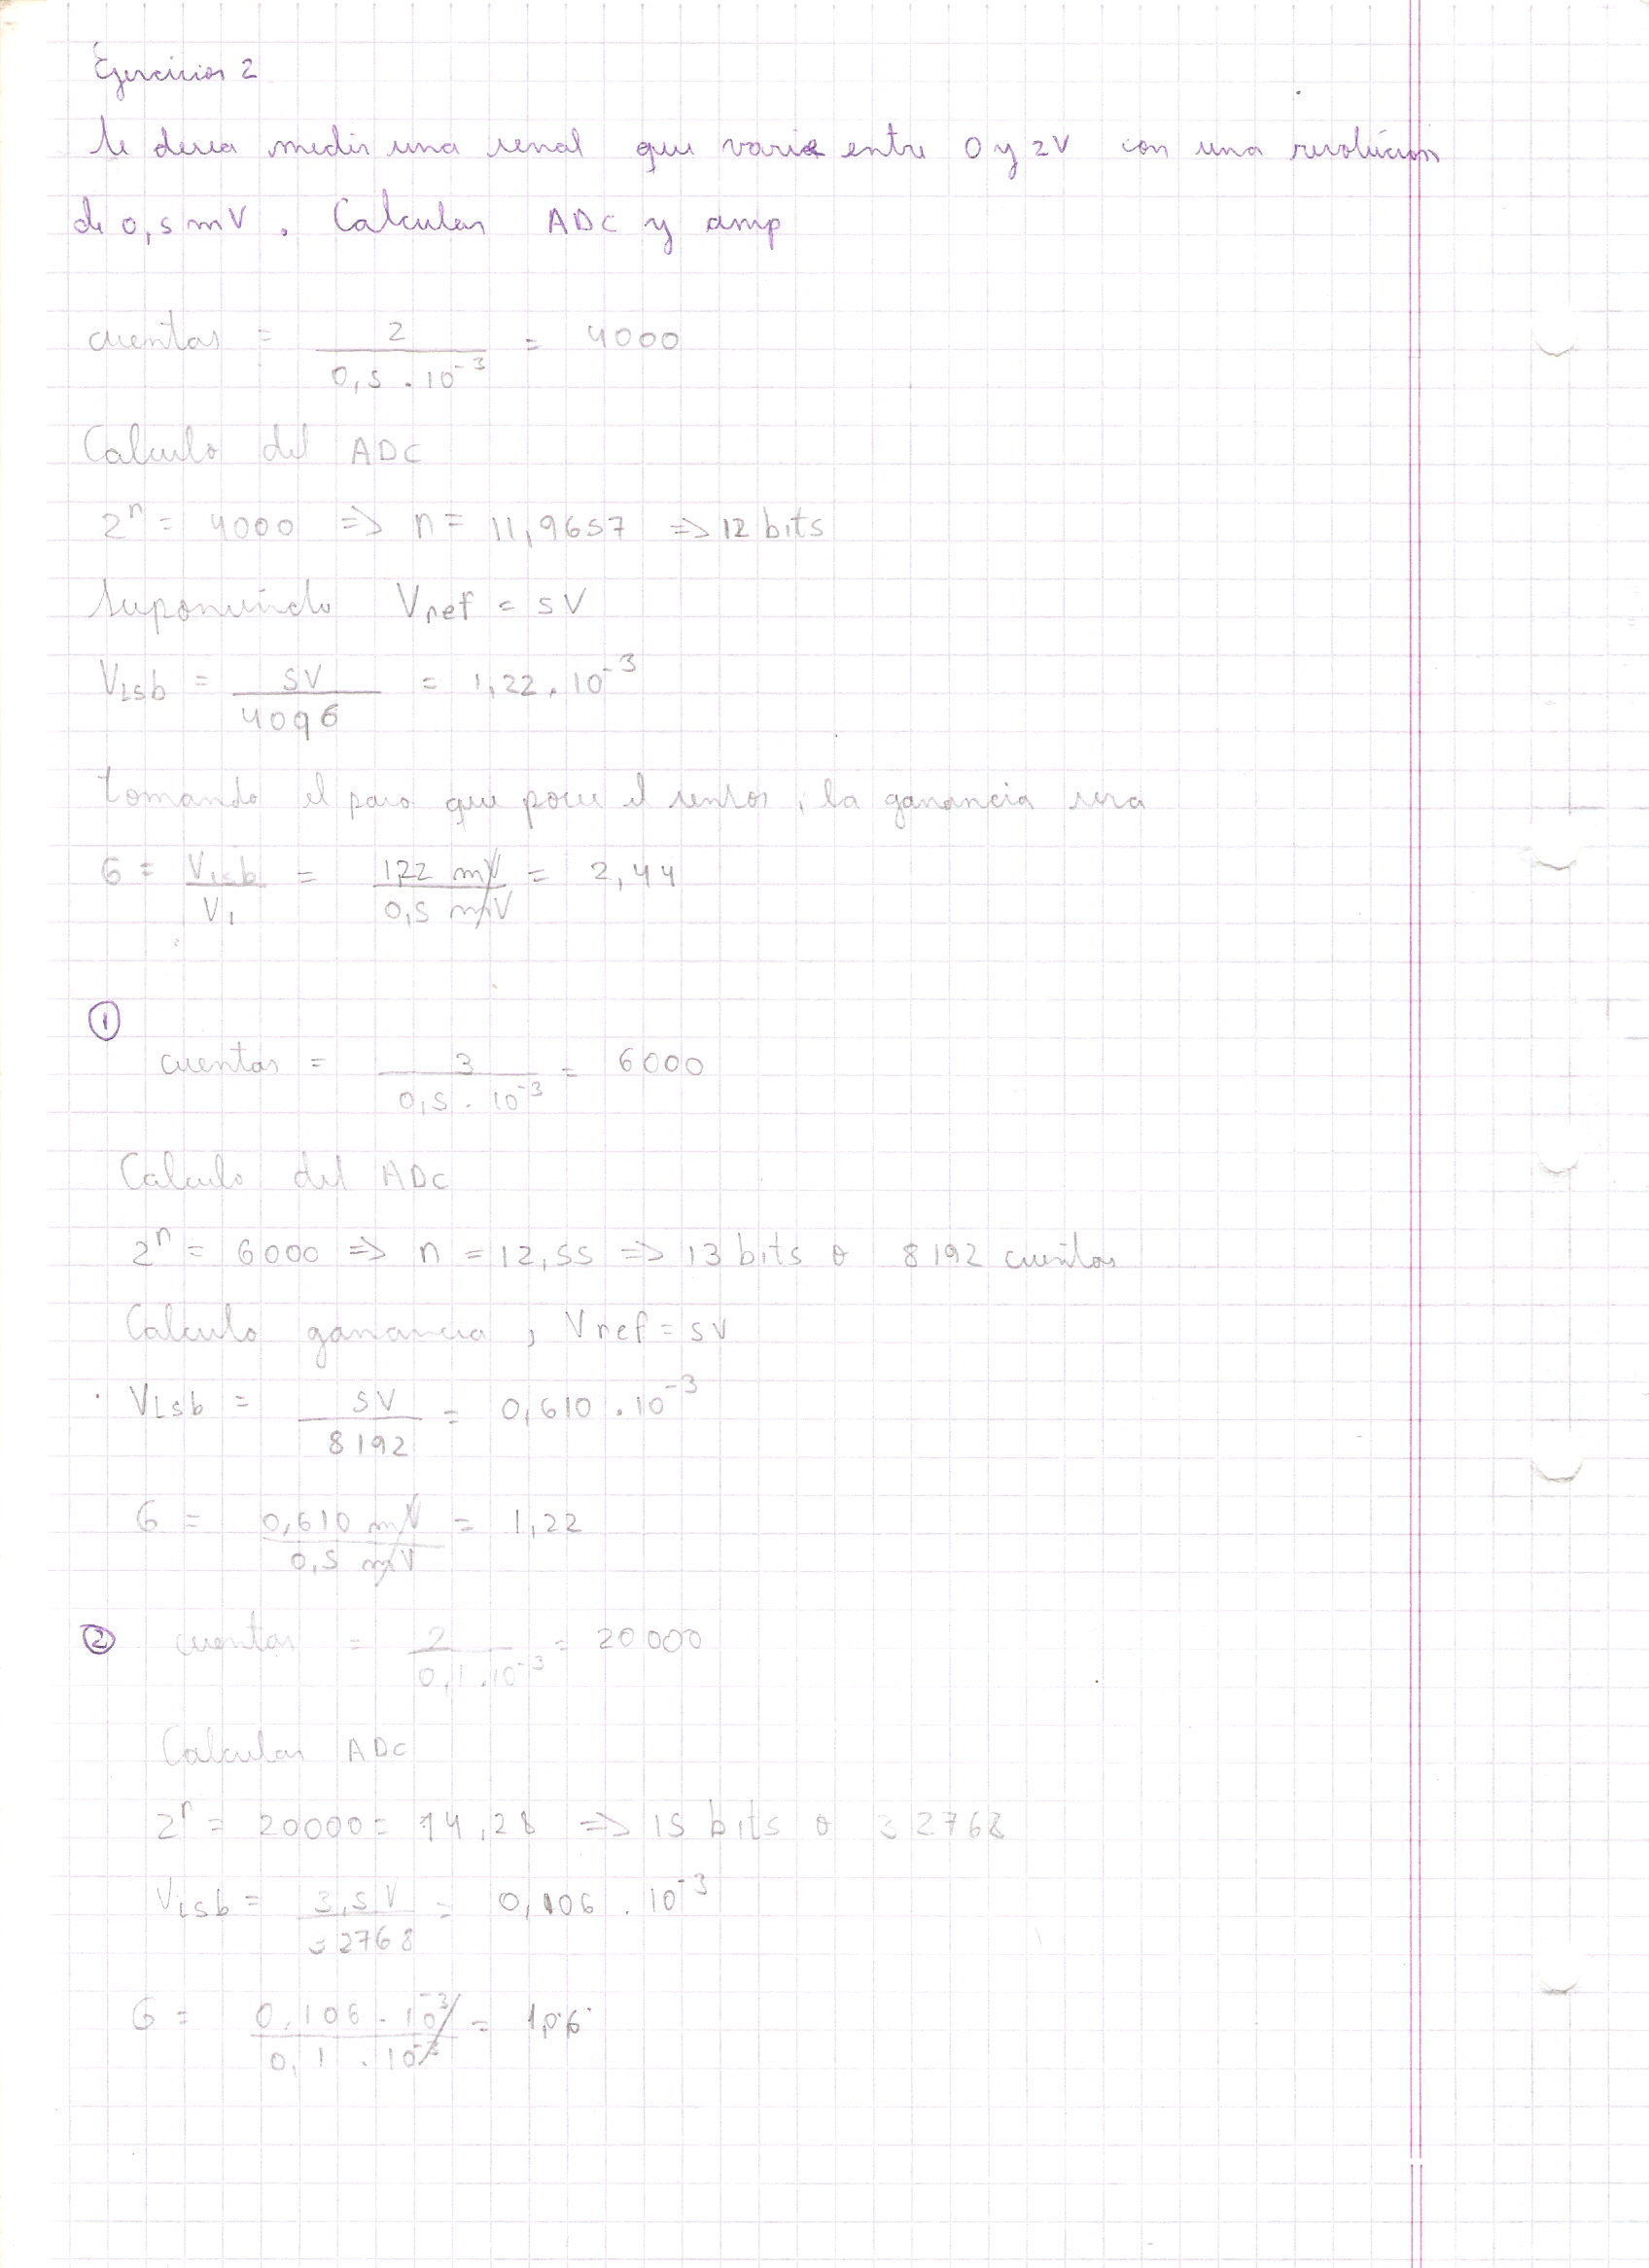 Ejercicios 2
Se desea medir una senal que varia entre 0 y 2V con una resolución
de 0,5 mV. Calcular ADC y amp
cuentas = 2 / 0,5 . 10^-3 = 4000
Calculo del ADC
2^n = 4000 => n = 11,9657 => 12 bits
Suponiendo Vref = 5V
VLsb = 5V / 4096 = 1,22 . 10^-3
tomando el paso que posee el sensor, la ganancia sera
G = VLsb / V1 = 1,22 mV / 0,5 mV = 2,44
①
cuentas = 3 / 0,5 . 10^-3 = 6000
Calculo del ADC
2^n = 6000 => n = 12,55 => 13 bits o 8192 cuentas
Calculo ganancia, Vref = 5V
VLsb = 5V / 8192 = 0,610 . 10^-3
G = 0,610 mV / 0,5 mV = 1,22
② cuentas = 2 / 0,1 . 10^-3 = 20000
Calcular ADC
2^n = 20000 = 14,28 => 15 bits o 32768
VLsb = 3,5 V / 32768 = 0,106 . 10^-3
G = 0,106 . 10^-3 / 0,1 . 10^-3 = 1,06